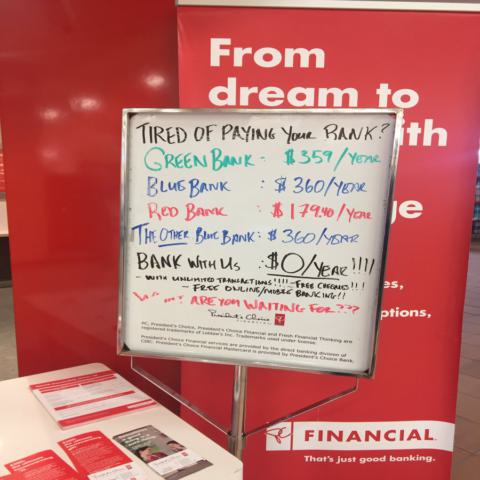 From
dream to
ith
ge
es,
options,
TIRED OF PAYING YOUR BANK?
GREEN BANK : $359/YEAR
BLUE BANK : $360/YEAR
RED BANK : $179.40/YEAR
THE OTHER BLUE BANK : $360/YEAR
BANK WITH US : $0/YEAR!!!!
- WITH UNLIMITED TRANSACTIONS!!!! - FREE CHEQUES!!
- FREE ONLINE/MOBILE BANKING!!
ARE YOU WAITING FOR???
President's Choice
FINANCIAL
PC, President's Choice, President's Choice Financial and Fresh Financial Thinking are
registered trademarks of Loblaw's Inc. Trademarks used under license.
President's Choice Financial services are provided by the direct banking division of
CIBC. President's Choice Financial Mastercard is provided by President's Choice Bank.
PC FINANCIAL
That's just good banking.